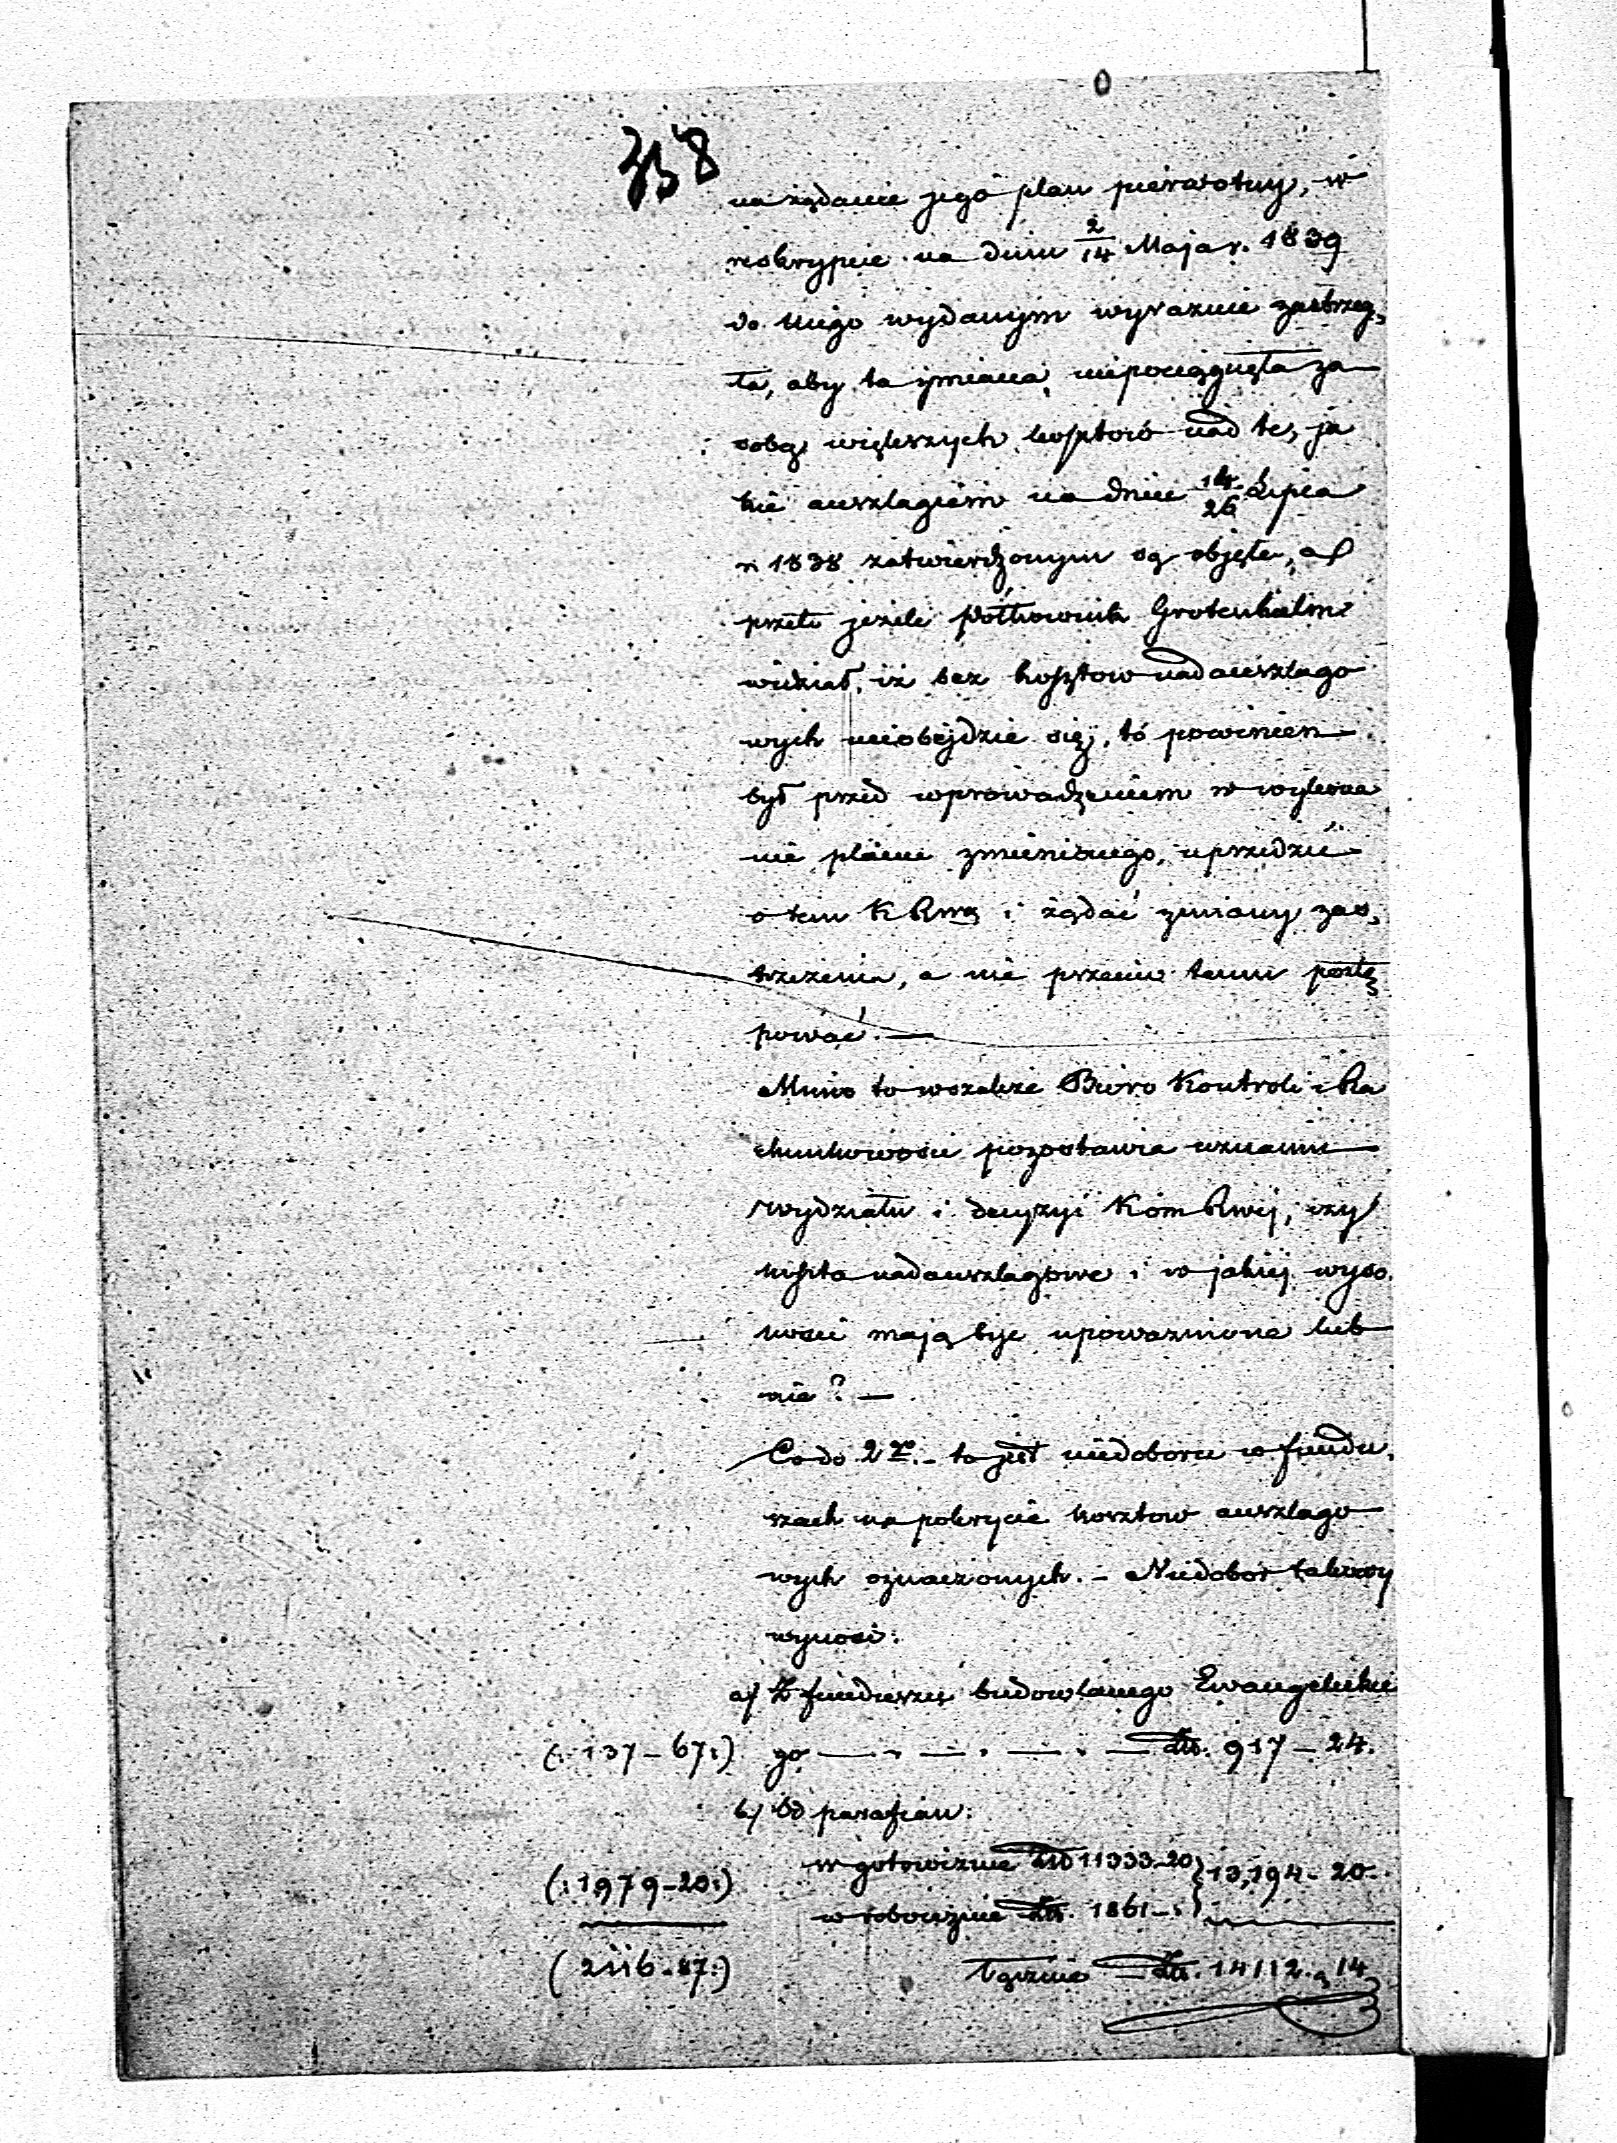 338
na żądanie jego plan pierwotny, w
reskrypcie na dniu 2/14 Maja r. 1839
do niego wydanym wyraznie zastrzeg,
ła, aby ta zmiana niepociągnęła za
sobą większych kosztów nad te, ja
kie anszlagiem na dniu 14/26 Lipca
r. 1838 zatwierdzonym są objęte, a
przeto jeżeli Półkownik Grotenhelm
widział, iż bez kosztow nadanszlago
wych nieobejdzie się, to powinien
był przed wprowadzeniem w wykona
nie planu zmienionego, uprzedzić
o tem K R i żądać zmiany zas,
trzeżenia, a nie przeciw temu postę
pować. —
Mimo to wszakże Biuro Kontroli i Ra
chunkowosci pozostawia uznaniu
Wydziału i decyzyi Kom Rwej, czy
koszta nadanszlagowe i w jakiej wyso
kosci mają byc upowaznione lub
nie? —
Co do 2go. – to jest niedoboru w fundu,
szach na pokrycie kosztow anszlago
wych oznaczonych. – Niedobór takowy
wynosi:
a/ Z funduszu budowlanego Ewangelickie
(: 137 – 67:) go — . — . — . — Złt. 917 – 24.
b/ Od parafian:
w gotowiznie Złt 11333–20 } 13,194 – 20.
(: 1979–20:)
w robociznie Złt. 1861 – .
(2116–87:) Łącznie — Złt. 14112. 14